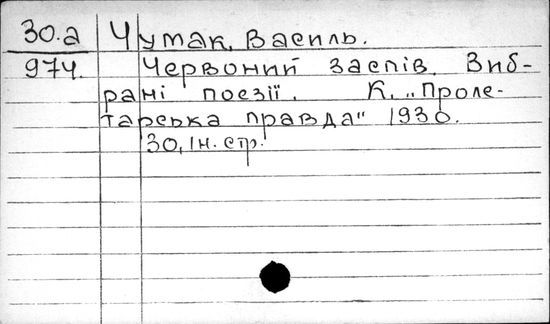 30.а Чумак, Василь.
974. Червоний заспів. Виб-
рані поезії. К. „Проле-
тарська правда" 1930.
30, Ін. стр.